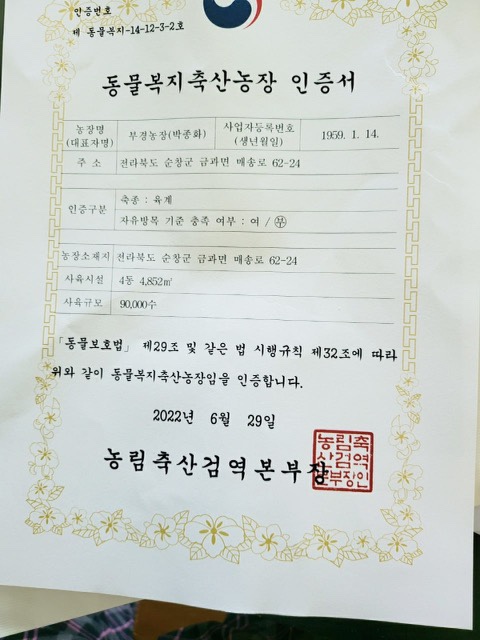 인증번호
제 동물복지-14-12-3-2호
동물복지축산농장 인증서
농장명
(대표자명)
부경농장(박종화)
사업자등록번호
(생년월일)
1959. 1. 14.
주 소
전라북도 순창군 금과면 매송로 62-24
인증구분
축종 : 육계
자유방목 기준 충족 여부 : 여 / 부
농장소재지
전라북도 순창군 금과면 매송로 62-24
사육시설
4동 4,852㎡
사육규모
90,000수
「동물보호법」 제29조 및 같은 법 시행규칙 제32조에 따라
위와 같이 동물복지축산농장임을 인증합니다.
2022년 6월 29일
농림축산검역본부장
농림축
산검역
본부장인